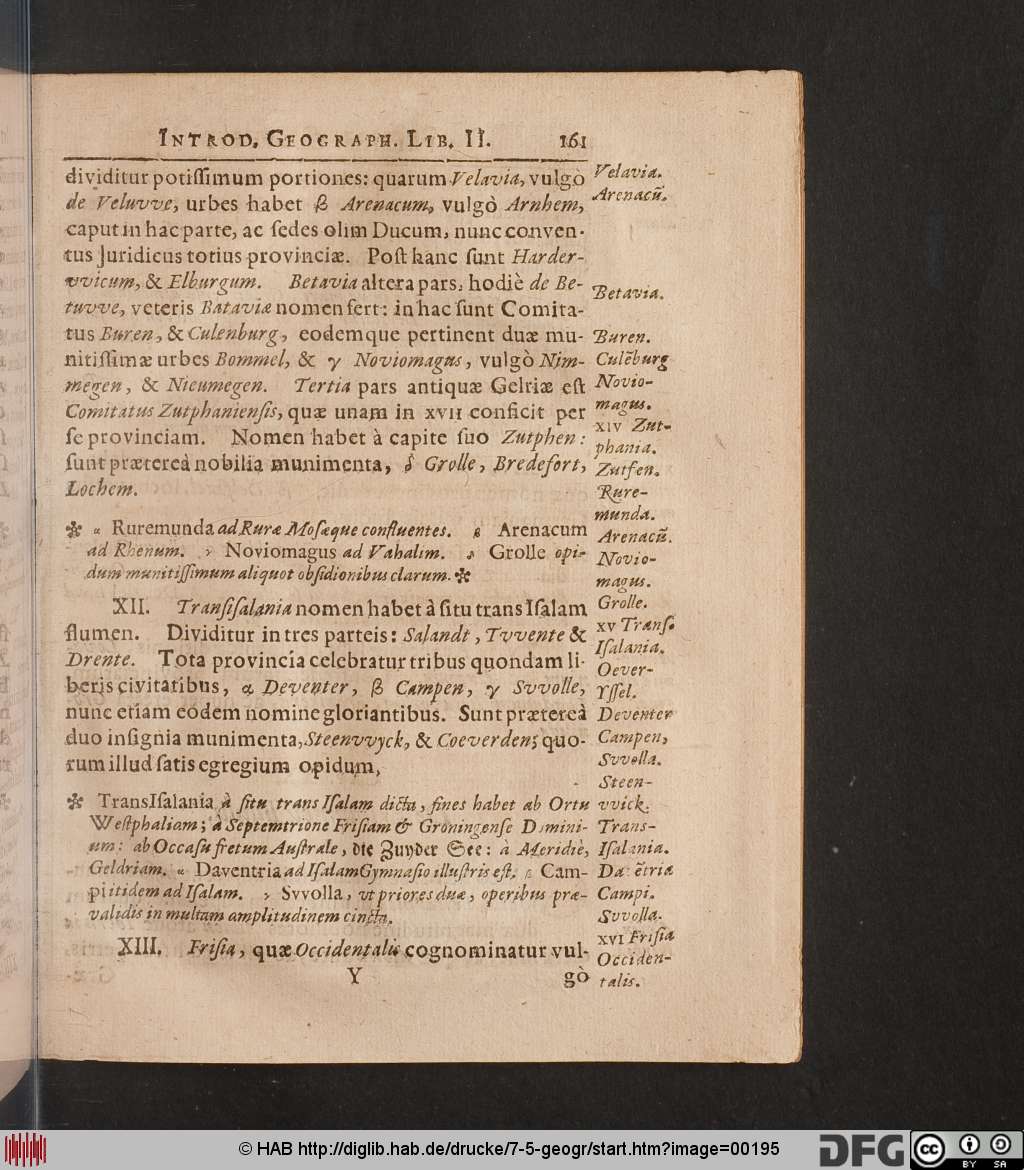 INTROD. GEOGRAPH. LIB. II. 161
dividitur potiſſimum portiones: quarum Velavia, vulgò
de Veluvve, urbes habet β Arenacum, vulgò Arnhem,
caput in hac parte, ac ſedes olim Ducum, nunc conven-
tus Juridicus totius provinciæ. Poſt hanc ſunt Harder-
vvicum, & Elburgum. Betavia altera pars, hodiè de Be-
tuvve, veteris Bataviæ nomen fert: in hac ſunt Comita-
tus Buren, & Culenburg, eodemque pertinent duæ mu-
nitiſſimæ urbes Bommel, & γ Noviomagus, vulgò Nim-
megen, & Nieumegen. Tertia pars antiquæ Gelriæ eſt
Comitatus Zutphanienſis, quæ unam in XVII conficit per
ſe provinciam. Nomen habet à capite ſuo Zutphen:
ſunt prætereà nobilia munimenta, δ Grolle, Bredefort,
Lochem.
✻ α Ruremunda ad Ruræ Moſæque confluentes. β Arenacum
ad Rhenum. γ Noviomagus ad Vahalim. δ Grolle opi-
dum munitiſſimum aliquot obſidionibus clarum. ✻
XII. Tranſiſalania nomen habet à ſitu trans Iſalam
flumen. Dividitur in tres parteis: Salandt, Tvvente &
Drente. Tota provincia celebratur tribus quondam li-
beris civitatibus, α Deventer, β Campen, γ Svvolle,
nunc etiam eodem nomine gloriantibus. Sunt prætereà
duo inſignia munimenta, Steenvvyck, & Coeverden; quo-
rum illud ſatis egregium opidum,
✻ TransIſalania à ſitu trans Iſalam dicta, fines habet ab Ortu
Weſtphaliam; à Septemtrione Friſiam & Groningenſe Domini-
um: ab Occaſu fretum Auſtrale, die Zuyder See: à Meridiè,
Geldriam. α Daventria ad Iſalam Gymnaſio illuſtris eſt. β Cam-
pi itidem ad Iſalam. γ Svvolla, ut priores duæ, operibus præ-
validis in multam amplitudinem cincta.
XIII. Friſia, quæ Occidentalis cognominatur vul-
Y gò
Velavia.
Arenacū.
Betavia.
Buren.
Culēburg
Novio-
magus.
XIV Zut-
phania.
Zutfen.
Rure-
munda.
Arenacū.
Novio-
magus.
Grolle.
XV Tranſ-
Iſalania.
Oever-
Yſſel.
Deventer
Campen,
Svvolla.
Steen-
vvick.
Trans-
Iſalania.
Campi.
Svvolla.
XVI Friſia
Occiden-
talis.
© HAB http://diglib.hab.de/drucke/7-5-geogr/start.htm?image=00195
DFG
cc
BY SA